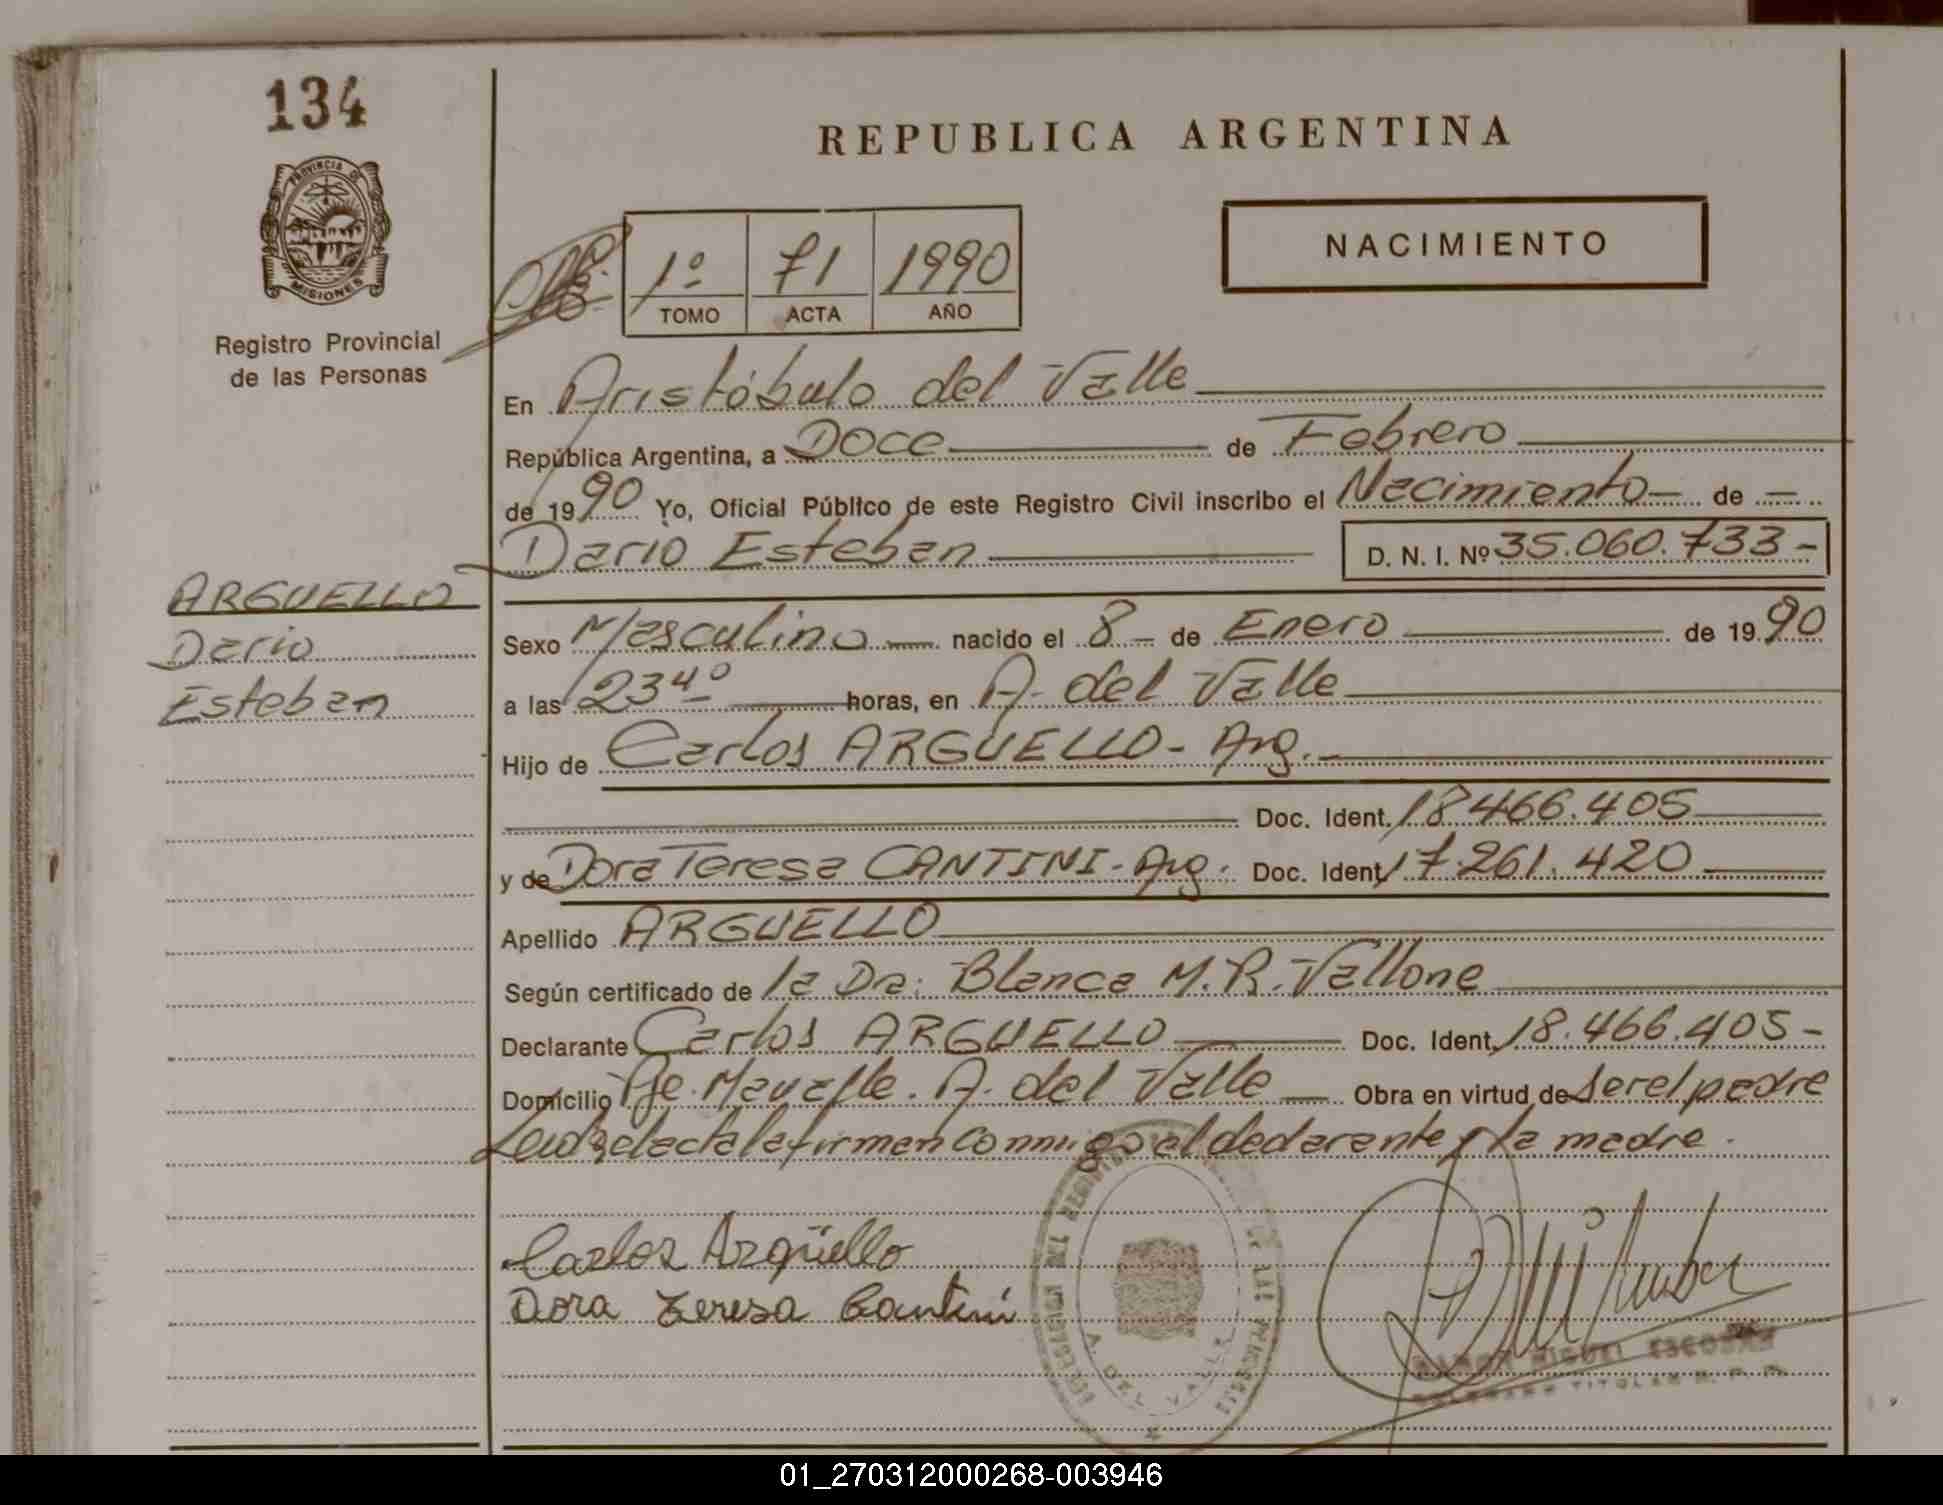 134
PROVINCIA DE
MISIONES
Registro Provincial
de las Personas
REPUBLICA ARGENTINA
NACIMIENTO
1º 71 1990
TOMO ACTA AÑO
En Aristóbulo del Valle
República Argentina, a Doce de Febrero
de 1990 Yo, Oficial Público de este Registro Civil inscribo el Nacimiento de
Dario Esteban D. N. I. Nº 35.060.733-
ARGUELLO
Dario
Esteban
Sexo Masculino nacido el 8 de Enero de 1990
a las 23 40 horas, en A. del Valle
Hijo de Carlos ARGUELLO - Arg.
Doc. Ident. 18.466.405
y de Dora Teresa CANTINI - Arg. Doc. Ident. 17.261.420
Apellido ARGUELLO
Según certificado de la Dra: Blanca M. R. Vallone
Declarante Carlos ARGUELLO Doc. Ident. 18.466.405-
Domicilio A. del Valle Obra en virtud de ser el padre
Leida el acta la firman conmigo el declarante y la madre.
Carlos Argüello
Dora Teresa Cantini
A. DEL VALLE
MIGUEL ESCOBAR
TITULAR
01_270312000268-003946